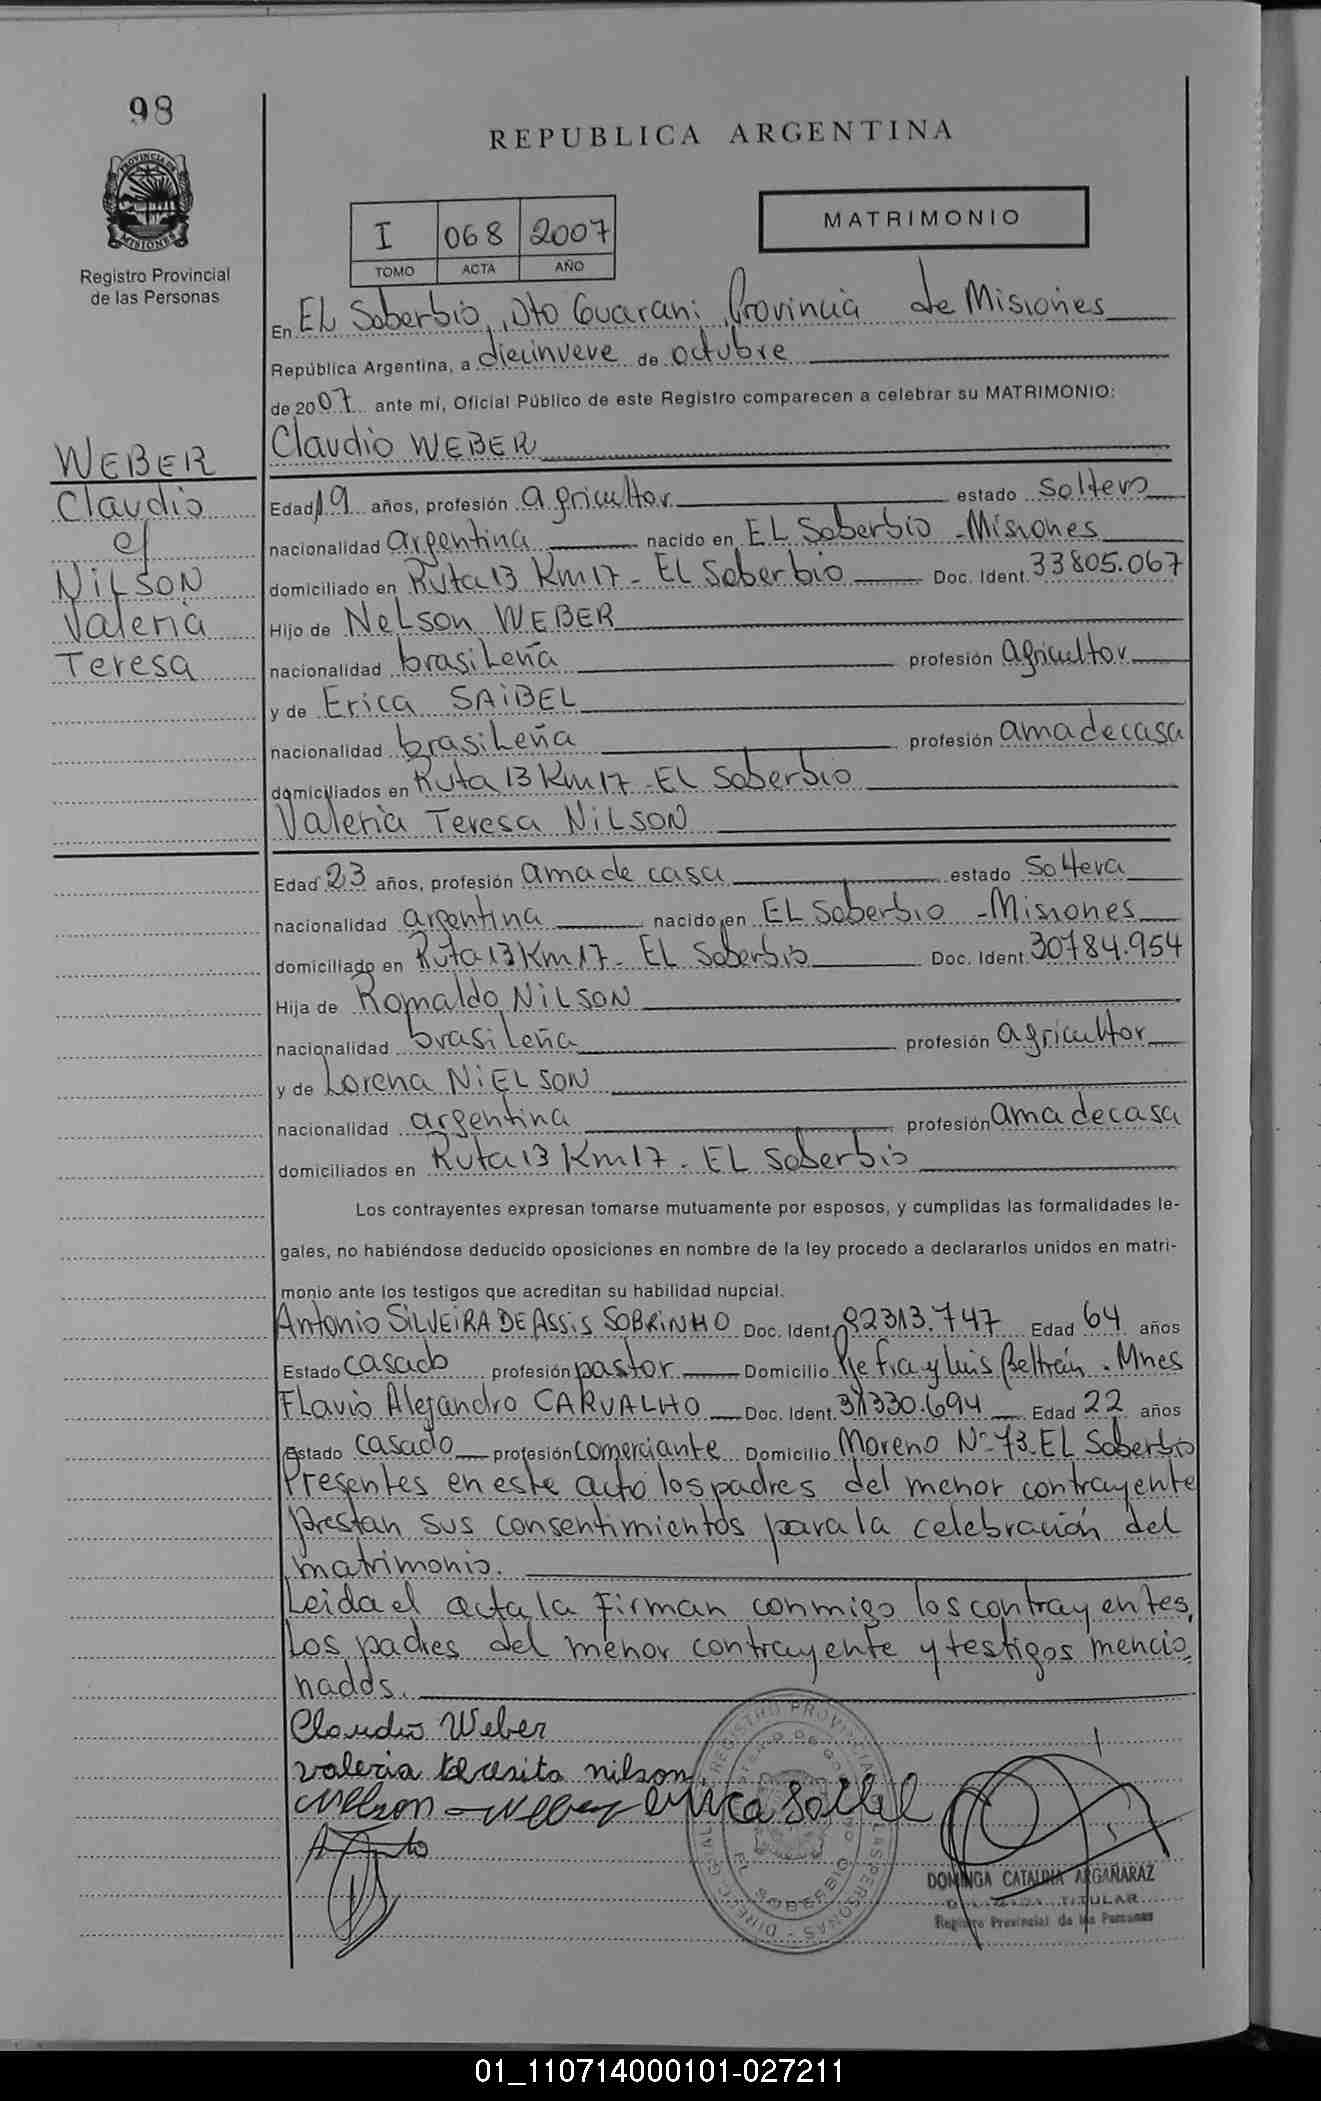 98
REPUBLICA ARGENTINA
PROVINCIA DE
MISIONES
Registro Provincial
de las Personas
I 068 2007
TOMO ACTA AÑO
MATRIMONIO
En EL Soberbio, Dto Guarani, Provincia de Misiones
República Argentina, a diecinueve de octubre
de 2007 ante mí, Oficial Público de este Registro comparecen a celebrar su MATRIMONIO:
Claudio WEBER
WEBER
Claudio
c/
NiLSON
Valeria
Teresa
Edad 19 años, profesión agricultor estado soltero
nacionalidad argentina nacido en EL Soberbio - Misiones
domiciliado en Ruta 13 Km 17 - EL Soberbio Doc. Ident. 33805.067
Hijo de NeLson WEBER
nacionalidad brasiLeña profesión agricultor
y de Erica SAiBEL
nacionalidad brasiLeña profesión ama de casa
domiciliados en Ruta 13 Km 17 - EL Soberbio
Valeria Teresa NiLSON
Edad 23 años, profesión ama de casa estado soltera
nacionalidad argentina nacido en EL Soberbio - Misiones
domiciliado en Ruta 13 Km 17 - EL Soberbio Doc. Ident. 30784.954
Hija de Romaldo NiLSON
nacionalidad brasiLeña profesión agricultor
y de Lorena NiELSON
nacionalidad argentina profesión ama de casa
domiciliados en Ruta 13 Km 17 - EL Soberbio
Los contrayentes expresan tomarse mutuamente por esposos, y cumplidas las formalidades le-
gales, no habiéndose deducido oposiciones en nombre de la ley procedo a declararlos unidos en matri-
monio ante los testigos que acreditan su habilidad nupcial.
Antonio SiLVEiRA DE ASSiS SOBRiNHO Doc. Ident. 92313.747 Edad 64 años
Estado casado profesión pastor Domicilio Pje Fray Luis Beltrán - Mnes
FLavio Alejandro CARVALHO Doc. Ident. 31330.694 Edad 22 años
Estado casado profesión comerciante Domicilio Moreno Nº 73 - EL Soberbio
Presentes en este acto los padres del menor contrayente
prestan sus consentimientos para la celebración del
matrimonio.
Leida el acta, la firman conmigo los contrayentes,
Los padres del menor contrayente y testigos mencio-
nados.
Claudio Weber
valeria teresita nilson
Nelson Weber erica Saibel
DOMINGA CATALINA ARGAÑARAZ
TITULAR
Registro Provincial de las Personas
01_110714000101-027211